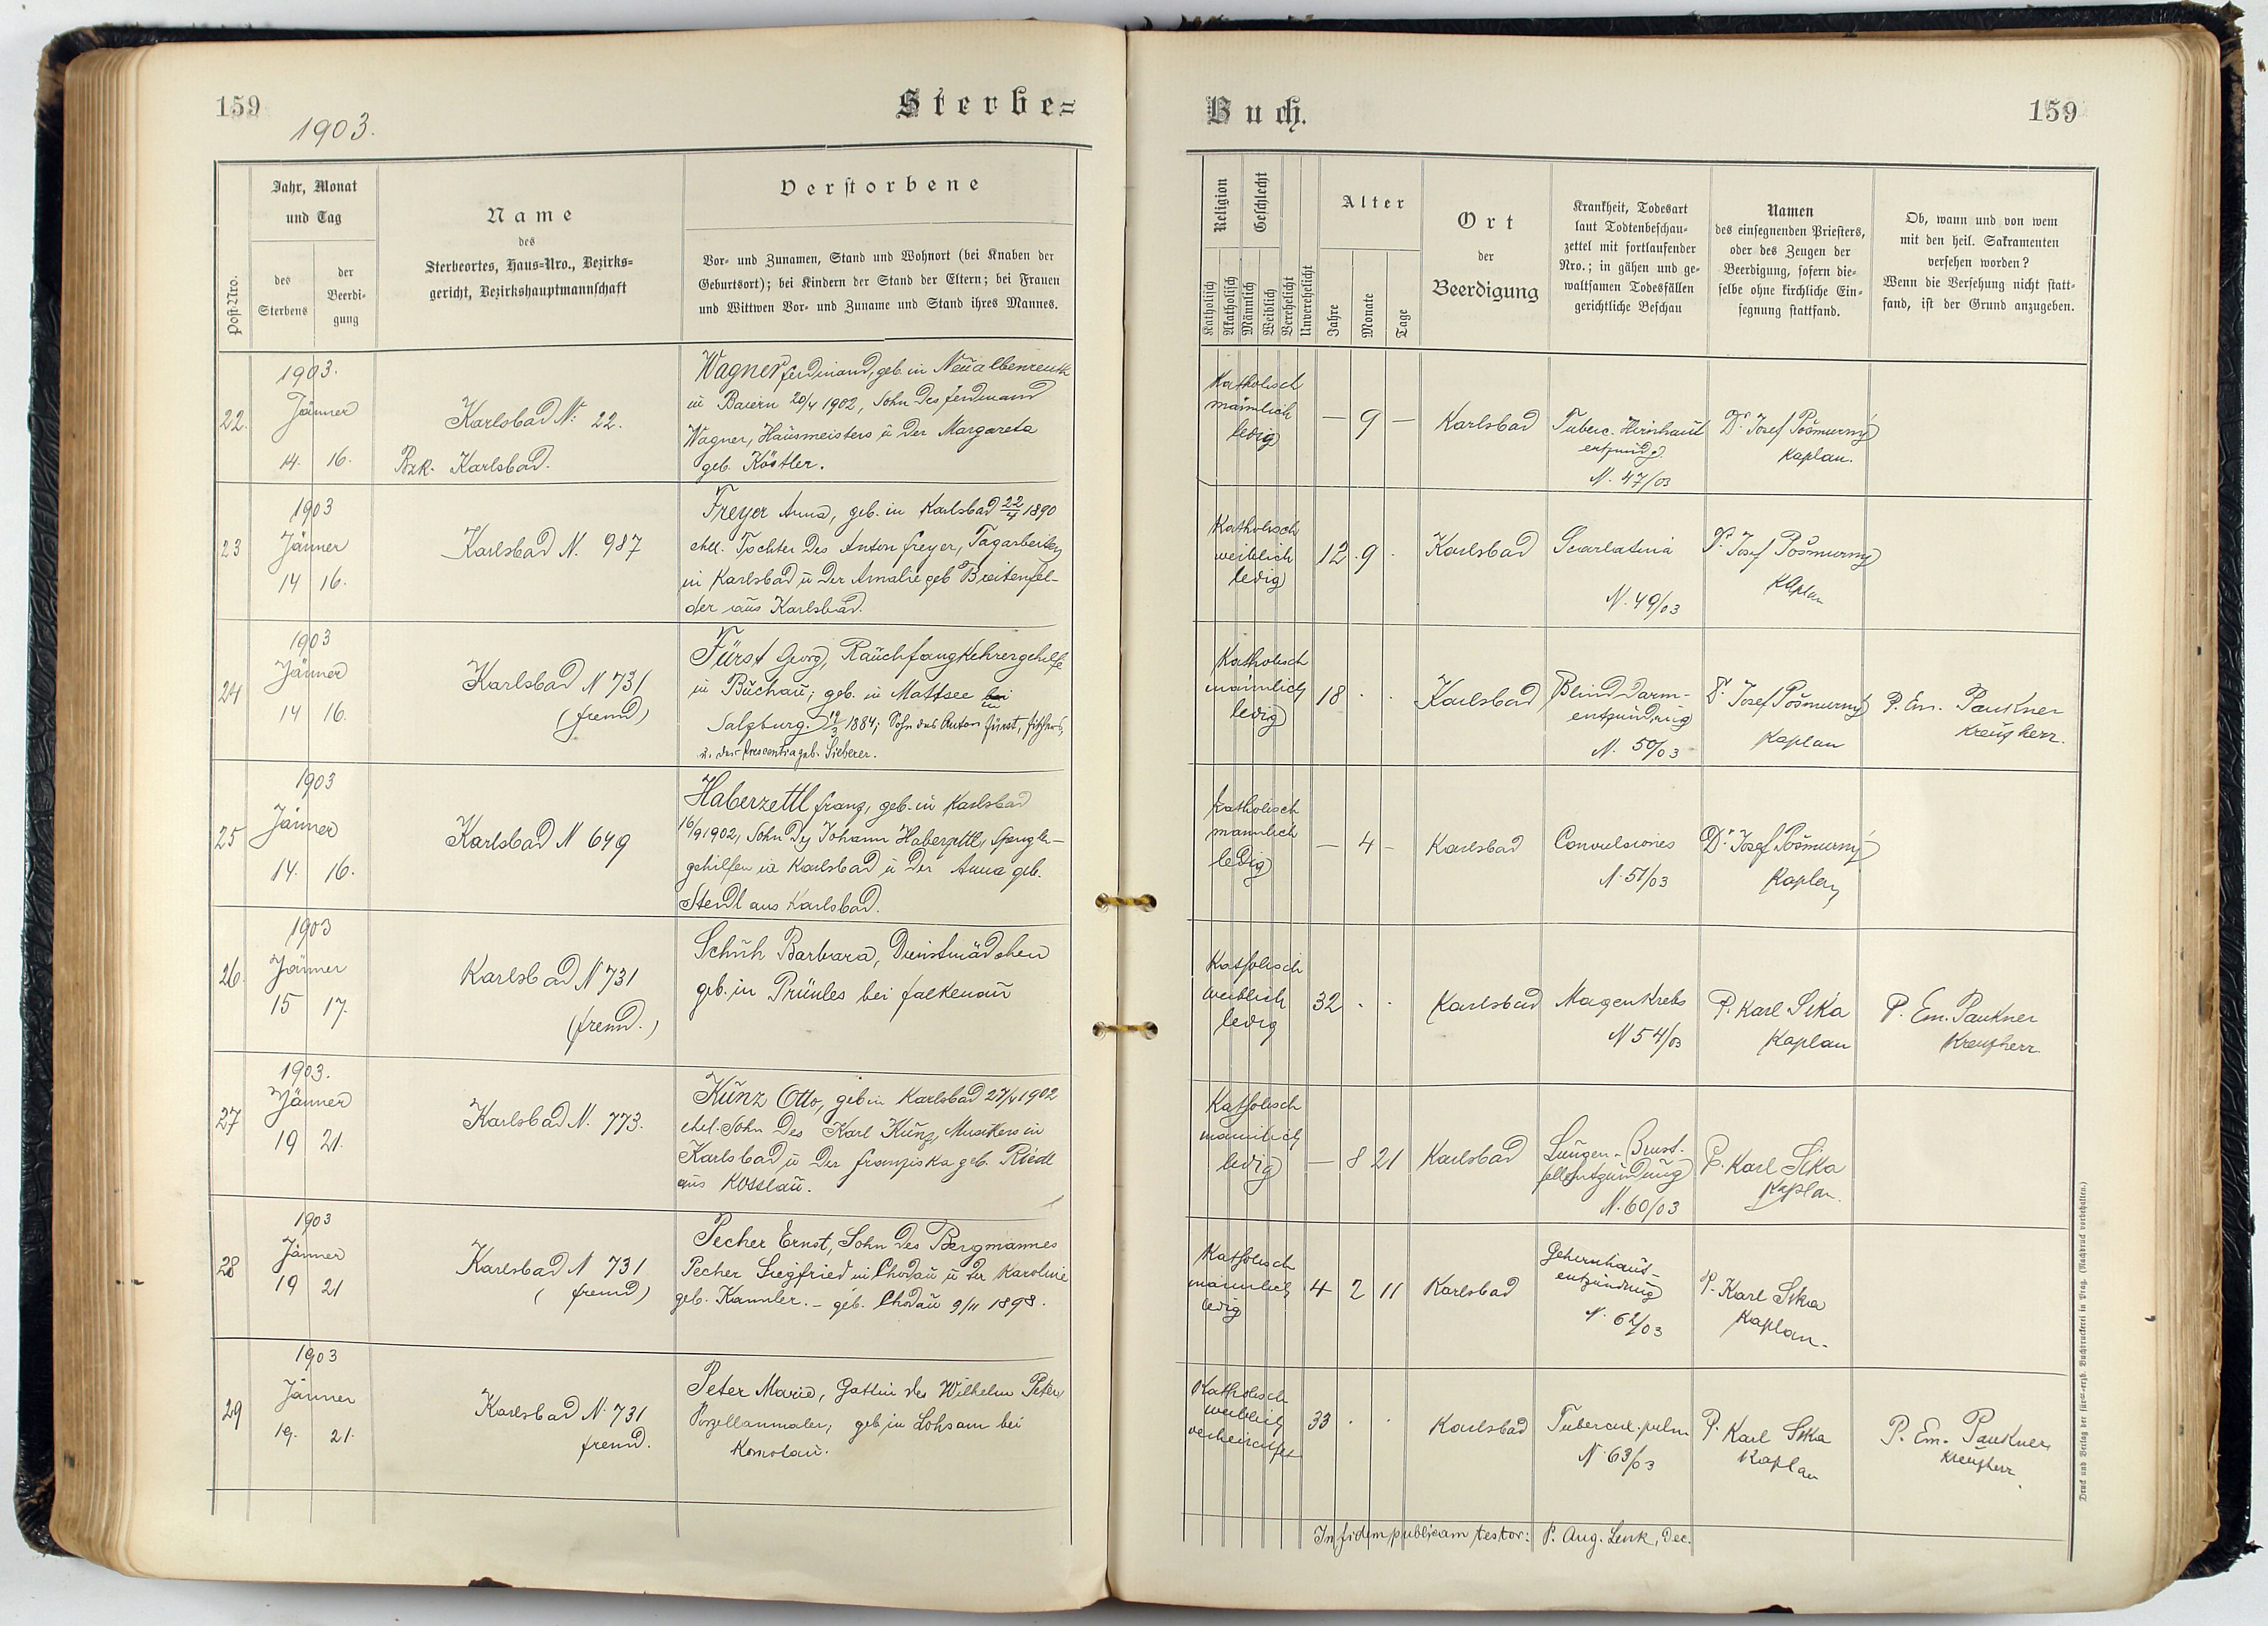 159
1903.
Sterbe=
Post-Nro.
Jahr, Monat
und Tag
des
Sterbens
der
Beerdi-
gung
Name
des
Sterbeortes, Haus-Nro., Bezirks-
gericht, Bezirkshauptmannschaft
Verstorbene
Vor- und Zunamen, Stand und Wohnort (bei Knaben der
Geburtsort); bei Kindern der Stand der Eltern; bei Frauen
und Wittwen Vor- und Zuname und Stand ihres Mannes.
22.
1903.
Jänner
14. 16.
Karlsbad N. 22.
Bzk. Karlsbad.
Wagner Ferdinand, geb. in Neualbenreuth
in Baiern 20/4 1902, Sohn des Ferdinand
Wagner, Hausmeisters u der Margareta
geb. Köstler.
23
1903
Jänner
14 16.
Karlsbad N. 987
Freyer Anna, geb. in Karlsbad 22/4 1890
ehel. Tochter des Anton Freyer, Tagarbeiters
in Karlsbad u der Amalie geb Breitenfel-
der aus Karlsbad.
24
1903
Jänner
14 16.
Karlsbad N 731
(fremd)
Fürst Georg, Rauchfangkehrergehilfe
in Buchau; geb. in Mattsee bei
in
Salzburg. 1884; Sohn des Anton Fürst,
u. der Crescentia geb. Sieberer.
25
1903
Jänner
14. 16.
Karlsbad N 649
Haberzettl Franz, geb. in Karlsbad
16/9 1902, Sohn des Johann Haberzettl, Spengler-
gehilfen in Karlsbad u der Anna geb.
Stendl aus Karlsbad.
26.
1903
Jänner
15 17.
Karlsbad N 731
(fremd.)
Schuh Barbara, Dienstmädchen
geb. in Prünles bei Falkenau
27
1903.
Jänner
19 21.
Karlsbad N. 773.
Kunz Otto, geb in Karlsbad 27/4 1902
ehel. Sohn des Karl Kunz, Musikers in
Karlsbad u der Franziska geb. Riedl
aus Kosslau.
28
1903
Jänner
19 21
Karlsbad N 731
(fremd)
Pecher Ernst, Sohn des Bergmannes
Pecher Siegfried in Chodau u der Karoline
geb. Kannler. – geb. Chodau 9/11 1898.
29
1903
Jänner
19. 21.
Karlsbad N. 731
fremd.
Peter Marie, Gattin des Wilhelm Peter,
Porzellanmaler, geb in Lohsam bei
Komotau.
Buch.
159
Religion
Katholisch
Akatholisch
Geschlecht
Männlich
Weiblich
Verehelicht
Unverehelicht
Alter
Jahre
Monate
Tage
Ort
der
Beerdigung
Krankheit, Todesart
laut Todtenbeschau-
zettel mit fortlaufender
Nro.; in gähen und ge-
waltsamen Todesfällen
gerichtliche Beschau
Namen
des einsegnenden Priesters,
oder des Zeugen der
Beerdigung, sofern die-
selbe ohne kirchliche Ein-
segnung stattfand.
Ob, wann und von wem
mit den heil. Sakramenten
versehen worden?
Wenn die Versehung nicht statt-
fand, ist der Grund anzugeben.
Katholisch
männlich
ledig
— 9 —
Karlsbad
Tuberc. Hirnhaut
entzündg.
N. 47/03
Dr. Josef Pošmurný
Kaplan.
Katholisch
weiblich
ledig
12 . 9 .
Karlsbad
Scarlatina
N. 49/03
Dr. Josef Pošmurný
Kaplan
Katholisch
männlich
ledig
18 . .
Karlsbad
Blinddarm-
entzündung
N. 50/03
Dr. Josef Pošmurný
Kaplan
P. Em. Paukner
Kreuzherr.
Katholisch
männlich
ledig
— 4 –
Karlsbad
Convulsiones
N. 51/03
Dr. Josef Pošmurný
Kaplan
Katholisch
weiblich
ledig
32 . .
Karlsbad
Magenkrebs
N 54/03
P. Karl Sika
Kaplan
P. Em. Paukner
Kreuzherr
Katholisch
männlich
ledig
— 8 21
Karlsbad
Lungen- Brust-
fellentzündung
N. 60/03
P. Karl Sika
Kaplan.
Katholisch
männlich
ledig
4 2 11
Karlsbad
Gehirnhaut-
entzündung
N. 62/03
P. Karl Sika
Kaplan.
Katholisch
weiblich
verheirathet
33 . .
Karlsbad
Tubercul. pulm
N. 63/03
P. Karl Sika
Kaplan
P. Em. Paukner
Kreuzherr.
In fidem publicam testor: P. Aug. Lenk, Dec.
Druck und Verlag der fürst-erzb. Buchdruckerei in Prag. (Nachdruck vorbehalten.)